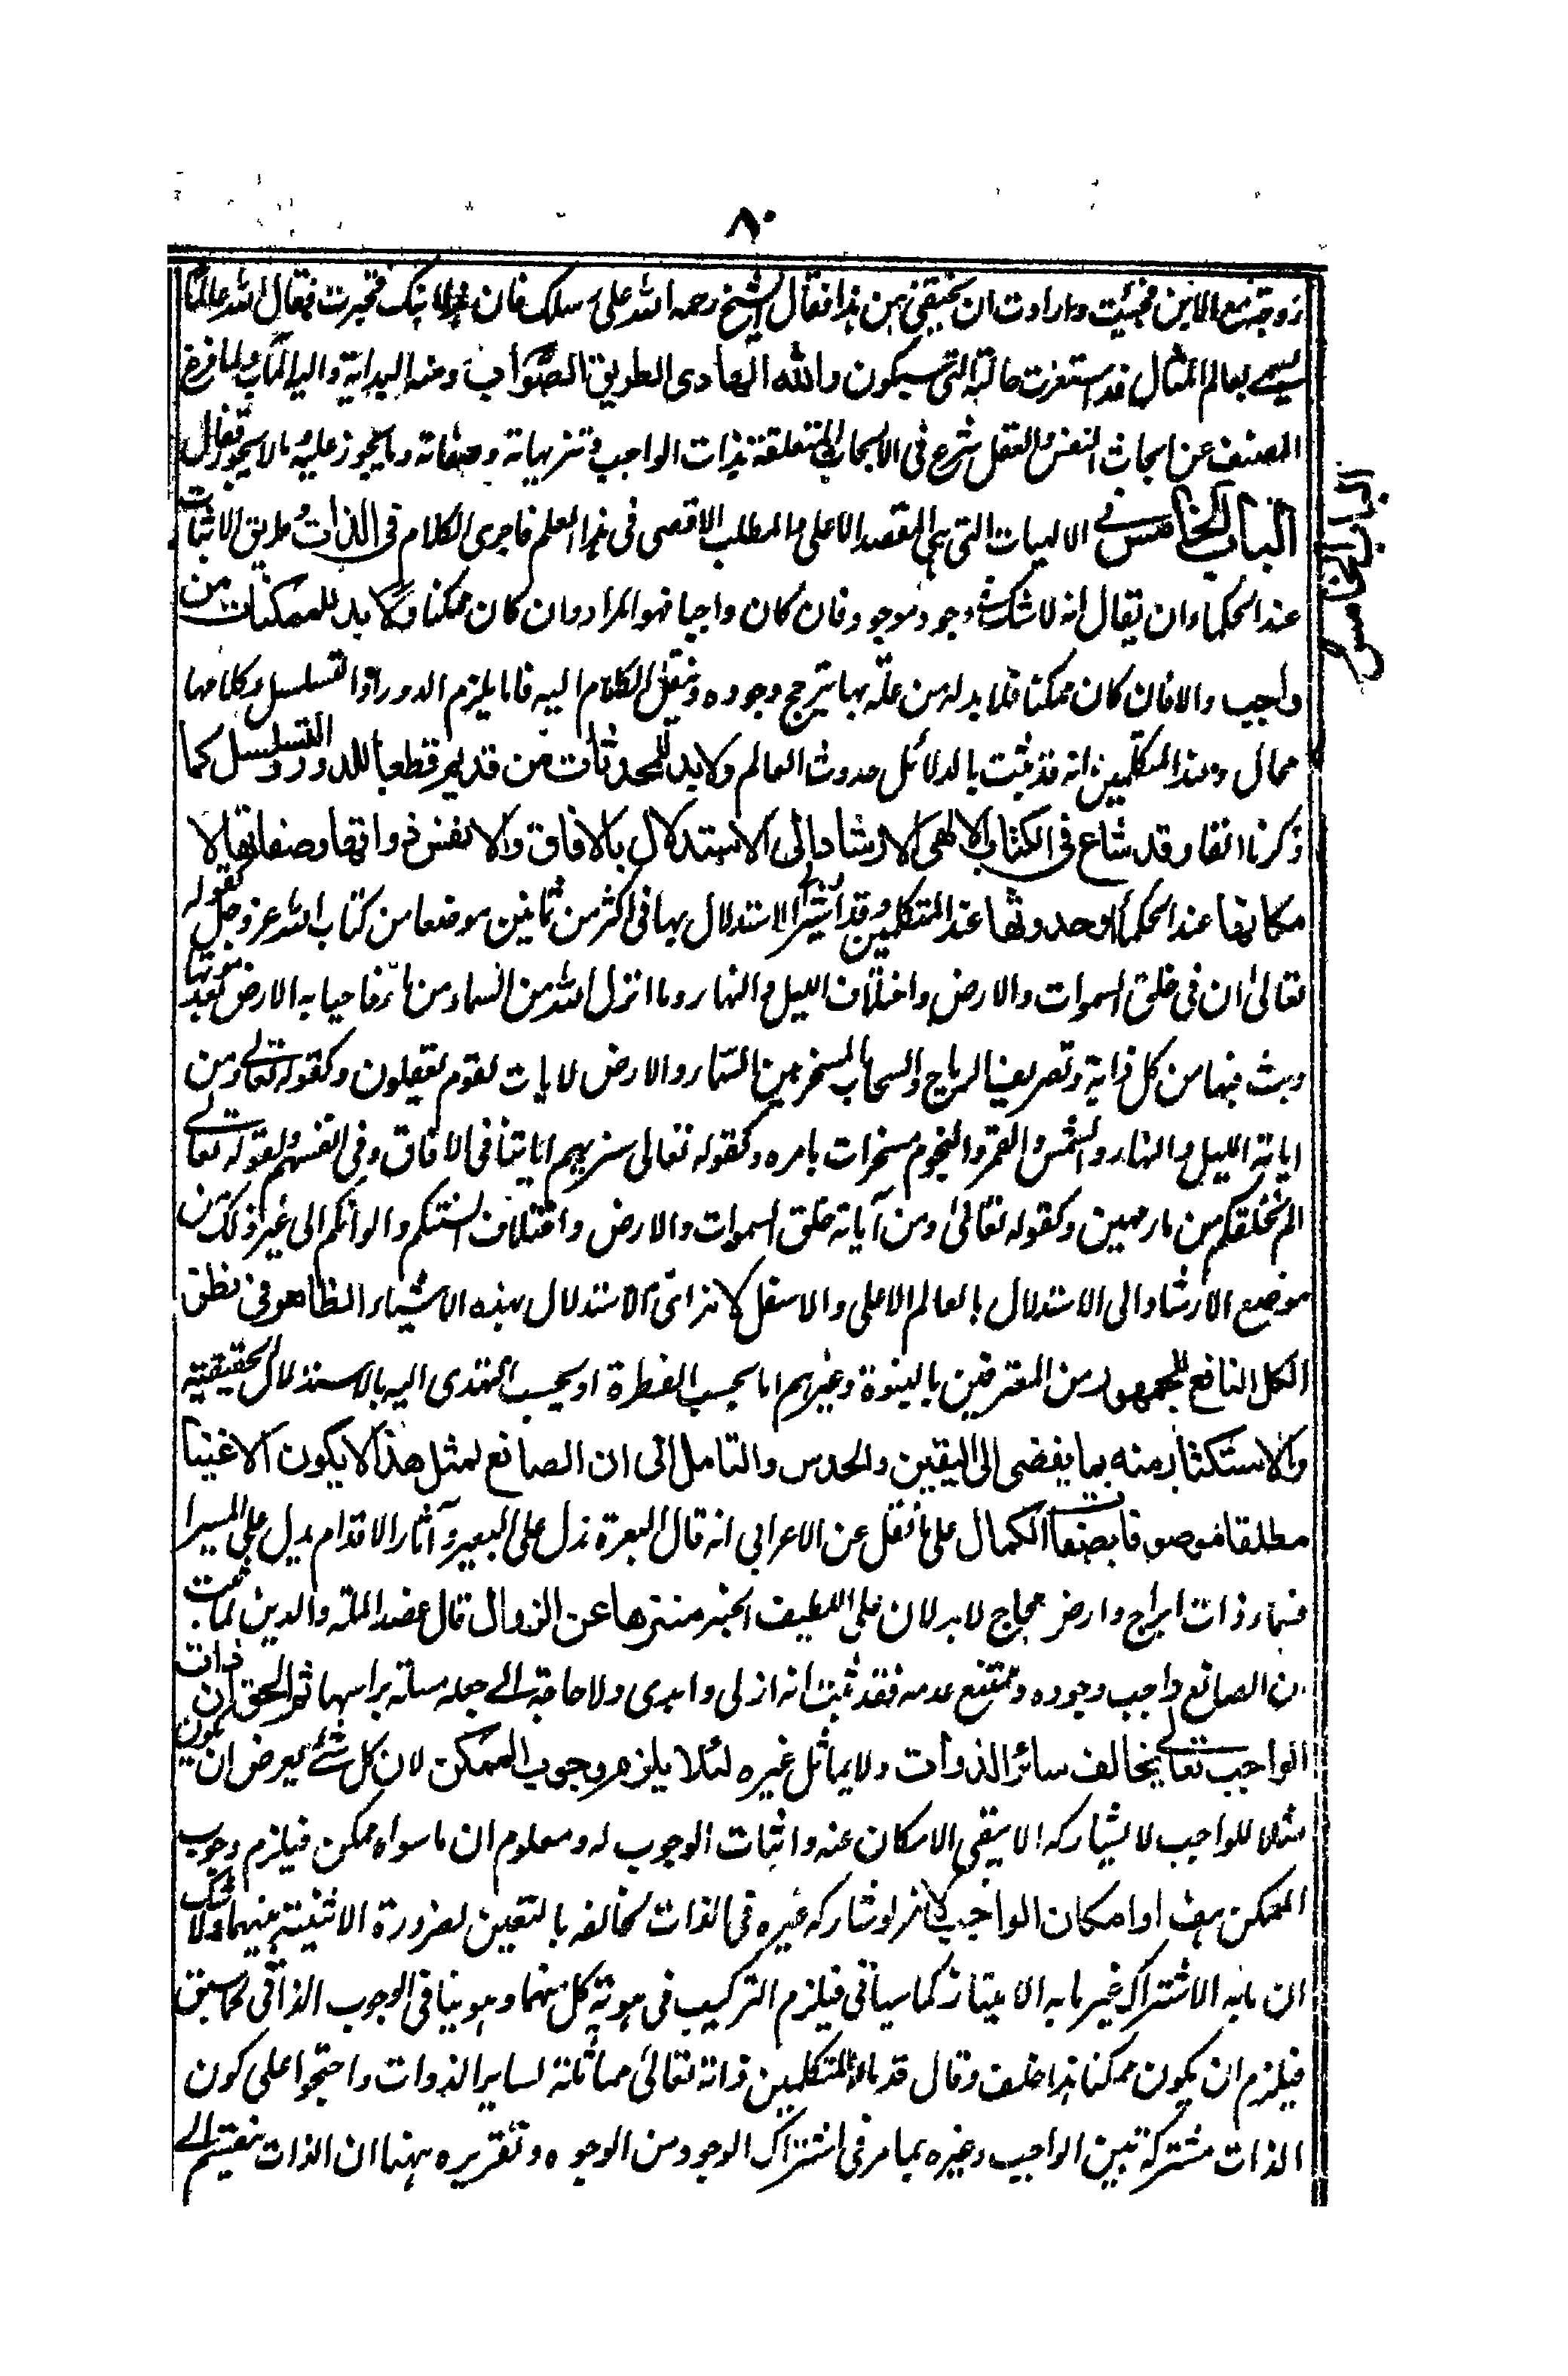 ٨٠
زوجته مع الابن فجئت وارادت ان يختفي من هذا فقال الشيخ رحمه الله على سلك فان هؤلاء بنك فتحيرت فقال الله عالما
يسمى بعالم المثال قد استغرت حالته التي سيكون والله الهادى لطريق الصواب ومنه البداية واليه المآب ولما فرغ
المصنف عن ابحاث النفس والعقل شرع في الابحاث المتعلقة بذات الواجب وتنزيهاته وصفاته وما يجوز عليه وما لا يجوز فقال
الباب الخامس في الالهيات التي هي المقصد الاعلى والمطلب الاقصى في هذا العلم فاجرى الكلام فى الذات وطريق الاثبات
عند الحكماء ان يقال انه لا شك في وجود موجود فان كان واجبا فهو المراد وان كان ممكنا ولا بد للممكنات من
واجب والا فان كان ممكنا فلا بد له من علة بها يترجح وجوده وننقل الكلام اليه فاما يلزم الدور او التسلسل وكلاهما
محال وعند المتكلمين انه قد ثبت بالدلائل حدوث العالم ولا بد للمحدثات من قديم قطعا للدور والتسلسل كما
ذكرنا انفا وقد شاع فى الكتاب الالهى الارشاد الى الاستدلال بالافاق والانفس ذواتها وصفاتها لا
مكانها عند الحكماء وحدوثها عند المتكلمين وقد اشير الى الاستدلال بها في اكثر من ثمانين موضعا من كتاب الله عز وجل كقوله
تعالى ان في خلق السموات والارض واختلاف الليل والنهار وما انزل الله من السماء من ماء فاحيا به الارض بعد موتها
وبث فيها من كل دابة وتصريف الرياح والسحاب المسخر بين السماء والارض لايات لقوم يعقلون وكقوله تعالى ومن
اياته الليل والنهار والشمس والقمر والنجوم مسخرات بامره وكقوله تعالى سنريهم اياتنا في الافاق وفي انفسهم وكقوله تعالى
الم نخلقكم من ماء مهين وكقوله تعالى ومن آياته خلق السموات والارض واختلاف السنتكم والوانكم الى غير ذلك من
موضع الارشاد الى الاستدلال بالعالم الاعلى والاسفل لانه اتى الاستدلال بهذه الاشياء الظاهر في نطق
الكل النافع للجمهور من المعترفين بالنبوة وغيرهم اما بحسب الفطرة او بحسب التهدى اليه بالاستدلال الحقيقية
والاستكثار منه بما يفضى الى اليقين والحدس والتامل الى ان الصانع لمثل هذا لا يكون الا غنيا
مطلقا موصوفا بصفات الكمال على ما نقل عن الاعرابي انه قال البعرة تدل على البعير وآثار الاقدام يدل على المسير ا
فسماء ذات ابراج وارض فجاج لا يدلان على اللطيف الخبير منزها عن الزوال قال عضد الملة والدين لما ثبت
ان الصانع واجب وجوده وممتنع عدمه فقد ثبت انه ازلى وابدى ولا حاجة الى جعله مسألة براسها ثم الحق ان ذات
الواجب تعالى يخالف سائر الذوات ولا يماثل غيره لئلا يلزم وجوب الممكن لان كل شئ يعرض ان يكون
مثلا للواجب لا يشاركه الا بنفى الامكان عنه واثبات الوجوب له ومعلوم ان ما سواه ممكن فيلزم وجوب
الممكن هف او امكان الواجب لانه لو شاركه غيره في الذات لخالفه بالتعين لضرورة الاثنينية بينهما ولا شك
ان ما به الاشتراك غير ما به الامتياز كما سياتى فيلزم التركيب في هوية كل منهما وهو ينافي الوجوب الذاتى كما سبق
فيلزم ان يكون ممكنا هذا خلف وقال قدماء المتكلمين ذاته تعالى مماثلة لساير الذوات واحتجوا على كون
الذات مشتركة بين الواجب وغيره بما مر في اشتراك الوجود من الوجوه وتقريره ههنا ان الذات ينقسم الى
الباب الخامس